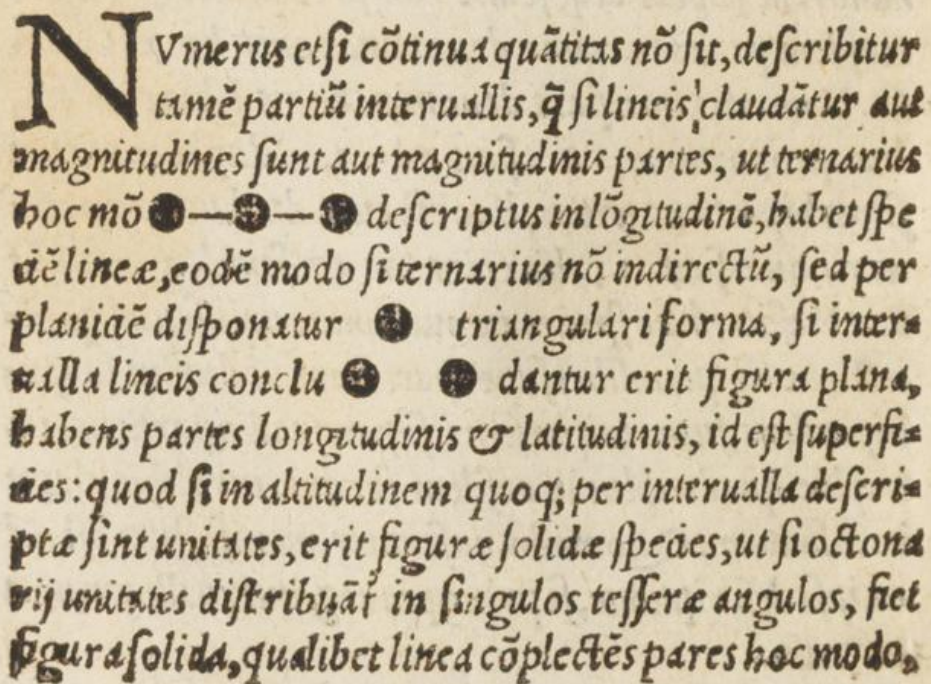 NVmerus etſi cõtinua quãtitas nõ ſit, deſcribitur
tamẽ partiũ interuallis, q̃ ſi lineis claudãtur aut
magnitudines ſunt aut magnitudinis partes, ut ternarius
hoc mõ deſcriptus in lõgitudinẽ, habet ſpe
ciẽ lineæ, eodẽ modo ſi ternarius nõ indirectũ, ſed per
planiciẽ diſponatur triangulari forma, ſi inter-
ualla lineis conclu dantur erit figura plana,
habens partes longitudinis & latitudinis, id eſt ſuperfi-
cies: quod ſi in altitudinem quoq; per interualla deſcri-
ptæ ſint unitates, erit figuræ ſolidæ ſpecies, ut ſi octona
rij unitates diſtribuãt᷑ in ſingulos teſſeræ angulos, fiet
figura ſolida, qualibet linea cõplectẽs pares hoc modo,